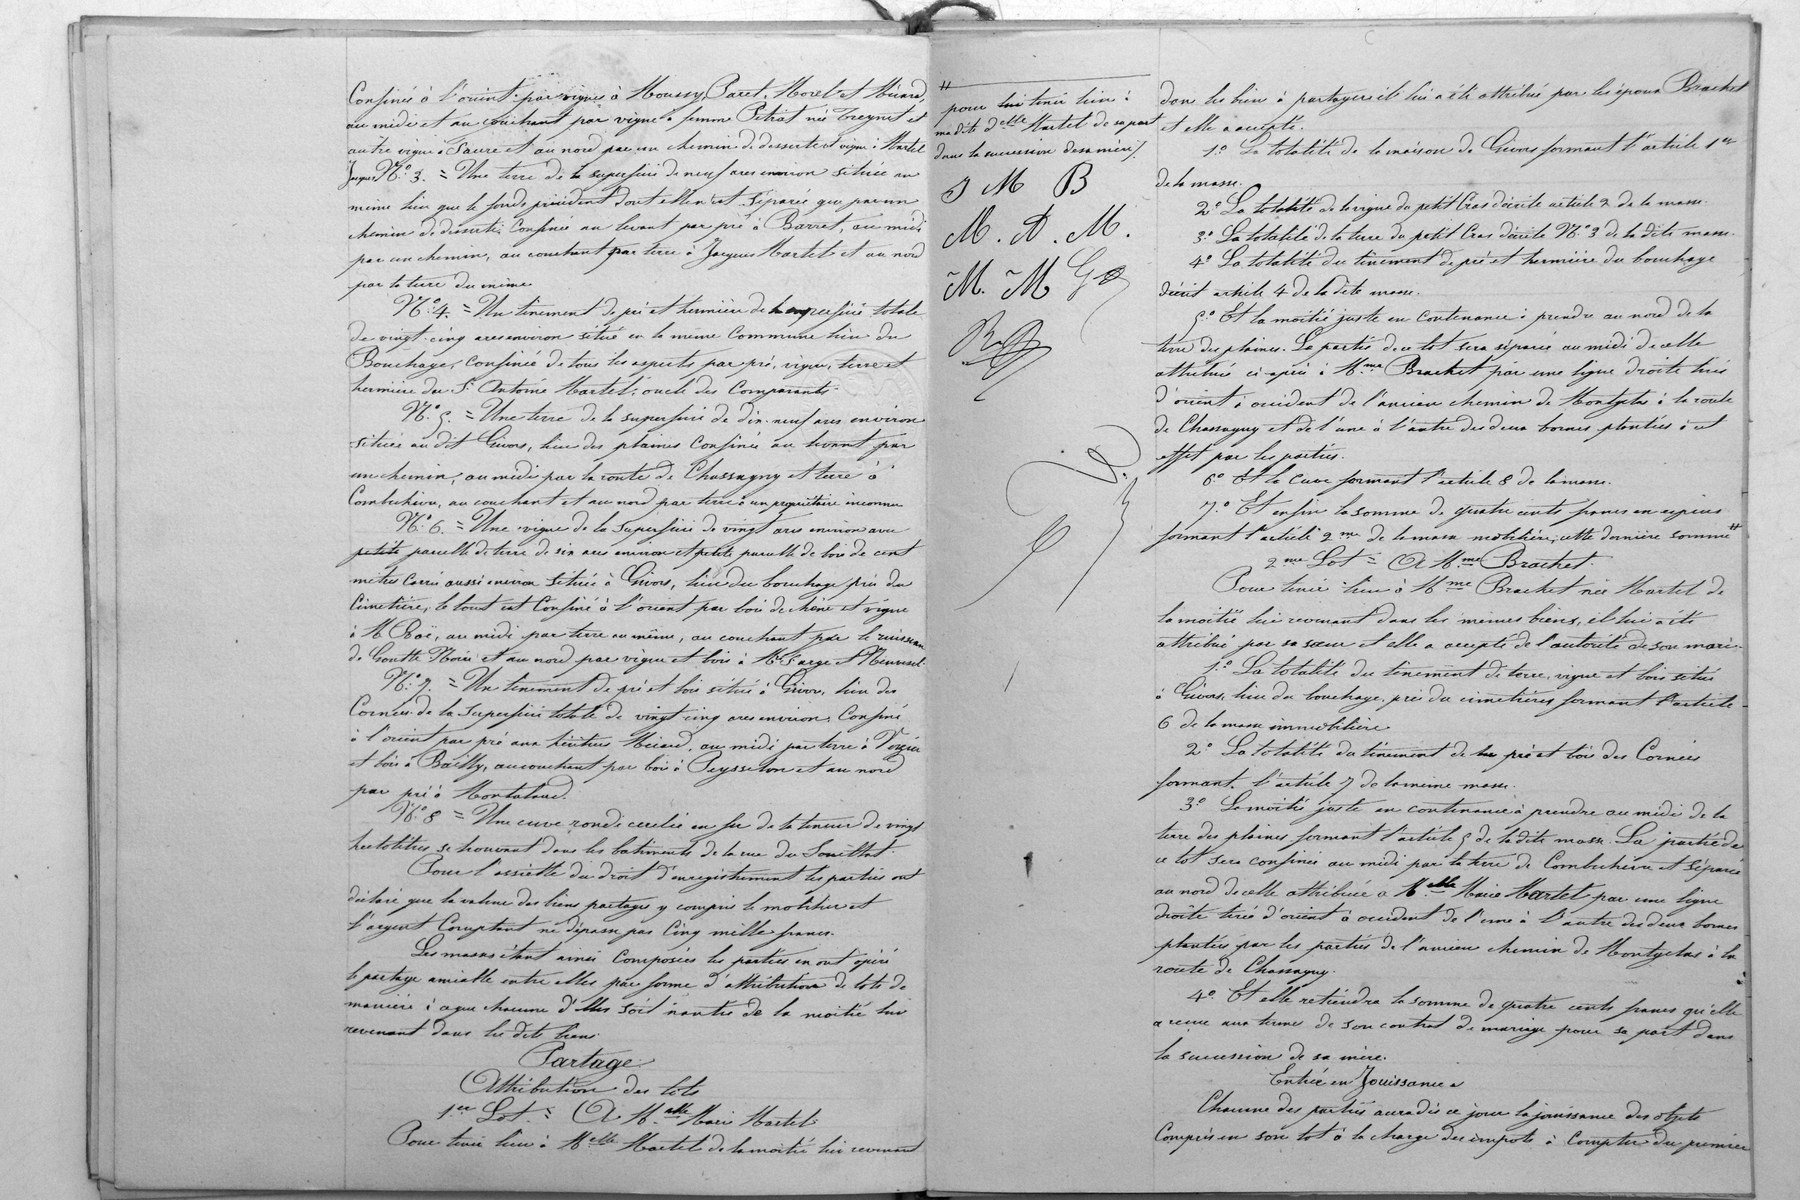 Confinée à l'orient par vigne à Moussy, Paret, Morel et Micard,
au midi et au couchant par vigne à femme Pitrat née Freynet et
autre vigne à Faure et au nord par un chemin de desserte et vigne à Martel
Jacques N.° 3. = Une terre de la superficie de neuf ares environ située au
même lieu que le fonds précédent dont elle n'est séparée que par un
chemin de desserte; Confinée au levant par pré à Barret, au midi
par un chemin, au couchant par terre à Jacques Martel et au nord
par la terre du même
N.° 4. = Un tènement de pré et hermière de la superficie totale
de vingt-cinq ares environ situé en la même Commune lieu du
Bouchage, confiné de tous les aspects par pré, vigne, terre et
hermière du Sr Antoine Martel, oncle des Comparants
N.° 5. = Une terre de la superficie de dix-neuf ares environ
située au dit Givors, lieu des plaines Confinée au levant par
un chemin, au midi par la route de Chassagny et terre à
Combichéon, au couchant et au nord par terre à un propriétaire inconnu
N.° 6. = Une vigne de la superficie de vingt ares environ avec
petite parcelle de terre de six ares environ et petite parcelle de bois de cent
mètres carrés aussi environ située à Givors, lieu du bouchage près du
Cimetière, le tout est Confiné à l'orient par bois de chêne et vigne
à M. , au midi par terre au même, au couchant par le ruisseau
de Goutte Noire et au nord par vigne et bois à Mr Farge et
N.° 7. = Un tènement de pré et bois situé à Givors, lieu des
Cornées de la Superficie totale de vingt cinq ares environ. Confiné
à l'orient par pré aux héritiers Micard, au midi par terre à
et bois à Bailly, au couchant par bois à Peysselon et au nord
par pré à Montaland.
N.° 8 = Une cuve ronde cerclée en fer de la teneur de vingt
hectolitres se trouvant dans les bâtiments de la rue du
Pour l'assiette du droit d'enregistrement les parties ont
déclaré que la valeur des biens partagés y compris le mobilier et
l'argent Comptant ne dépasse pas Cinq mille francs.
Les masses étant ainsi Composées les parties en ont opéré
le partage amiable entre elles par forme d'attribution de lots de
manière à ce que chacune d'elles soit nantie de la moitié lui
revenant dans les dits biens
Partage
Attribution des lots
1er Lot = A Melle Marie Martel
Pour tenir lieu à Melle Martel de la moitié lui revenant
#
pour lui tenir lieu à
ma dite delle Martel de sa part
dans la succession de sa mère
J M B
M. A. M.
M. M G
dans les biens à partager il lui a été attribué par les époux Brachet
et elle a accepté.
1.° La totalité de la maison de Givors formant l'article 1er
de la masse.
2.° La totalité de la vigne du petit Cras décrite article 2 de la masse.
3.° La totalité de la terre du petit Cras décrite N.° 3 de la dite masse.
4.° La totalité du tènement de pré et hermière du bouchage
décrit article 4 de la dite masse.
5.° Et la moitié juste en contenance à prendre au nord de la
terre des plaines. La partie de ce lot sera séparée au midi de celle
attribuée ci-après à Mme Brachet par une ligne droite tirée
d'orient à occident de l'ancien chemin de Montgelas à la route
de Chassagny et de l'une à l'autre des deux bornes plantées à cet
effet par les parties.
6.° Et la Cuve formant l'article 8 de la masse.
7.° Et enfin la somme de quatre cents francs en espèces
formant l'article 2me de la masse mobilière, cette dernière somme #
2me Lot = A Mme Brachet.
Pour tenir lieu à Mme Brachet née Martel de
la moitié lui revenant dans les mêmes biens, il lui a été
attribué par sa sœur et elle a accepté de l'autorité de son mari.
1.° La totalité du tènement de terre, vigne et bois situé
à Givors, lieu du bouchage, près du cimetière, formant l'article
6 de la masse immobilière
2.° La totalité du tènement de pré et bois des Cornées
formant l'article 7 de la même masse.
3.° La moitié juste en contenance à prendre au midi de la
terre des plaines formant l'article 5 de la dite masse. La partie de
ce lot sera confinée au midi par la terre de Combichéon et séparée
au nord de celle attribuée à Melle Marie Martel par une ligne
droite tirée d'orient à occident de l'une à l'autre des deux bornes
plantées par les parties de l'ancien chemin de Montgelas à la
route de Chassagny.
4.° Et elle retiendra la somme de quatre cents francs qu'elle
a reçue aux termes de son contrat de mariage pour sa part dans
la succession de sa mère.
Entrée en Jouissance
Chacune des parties aura dès ce jour la jouissance des objets
Compris en son lot à la charge des impôts à Compter du premier